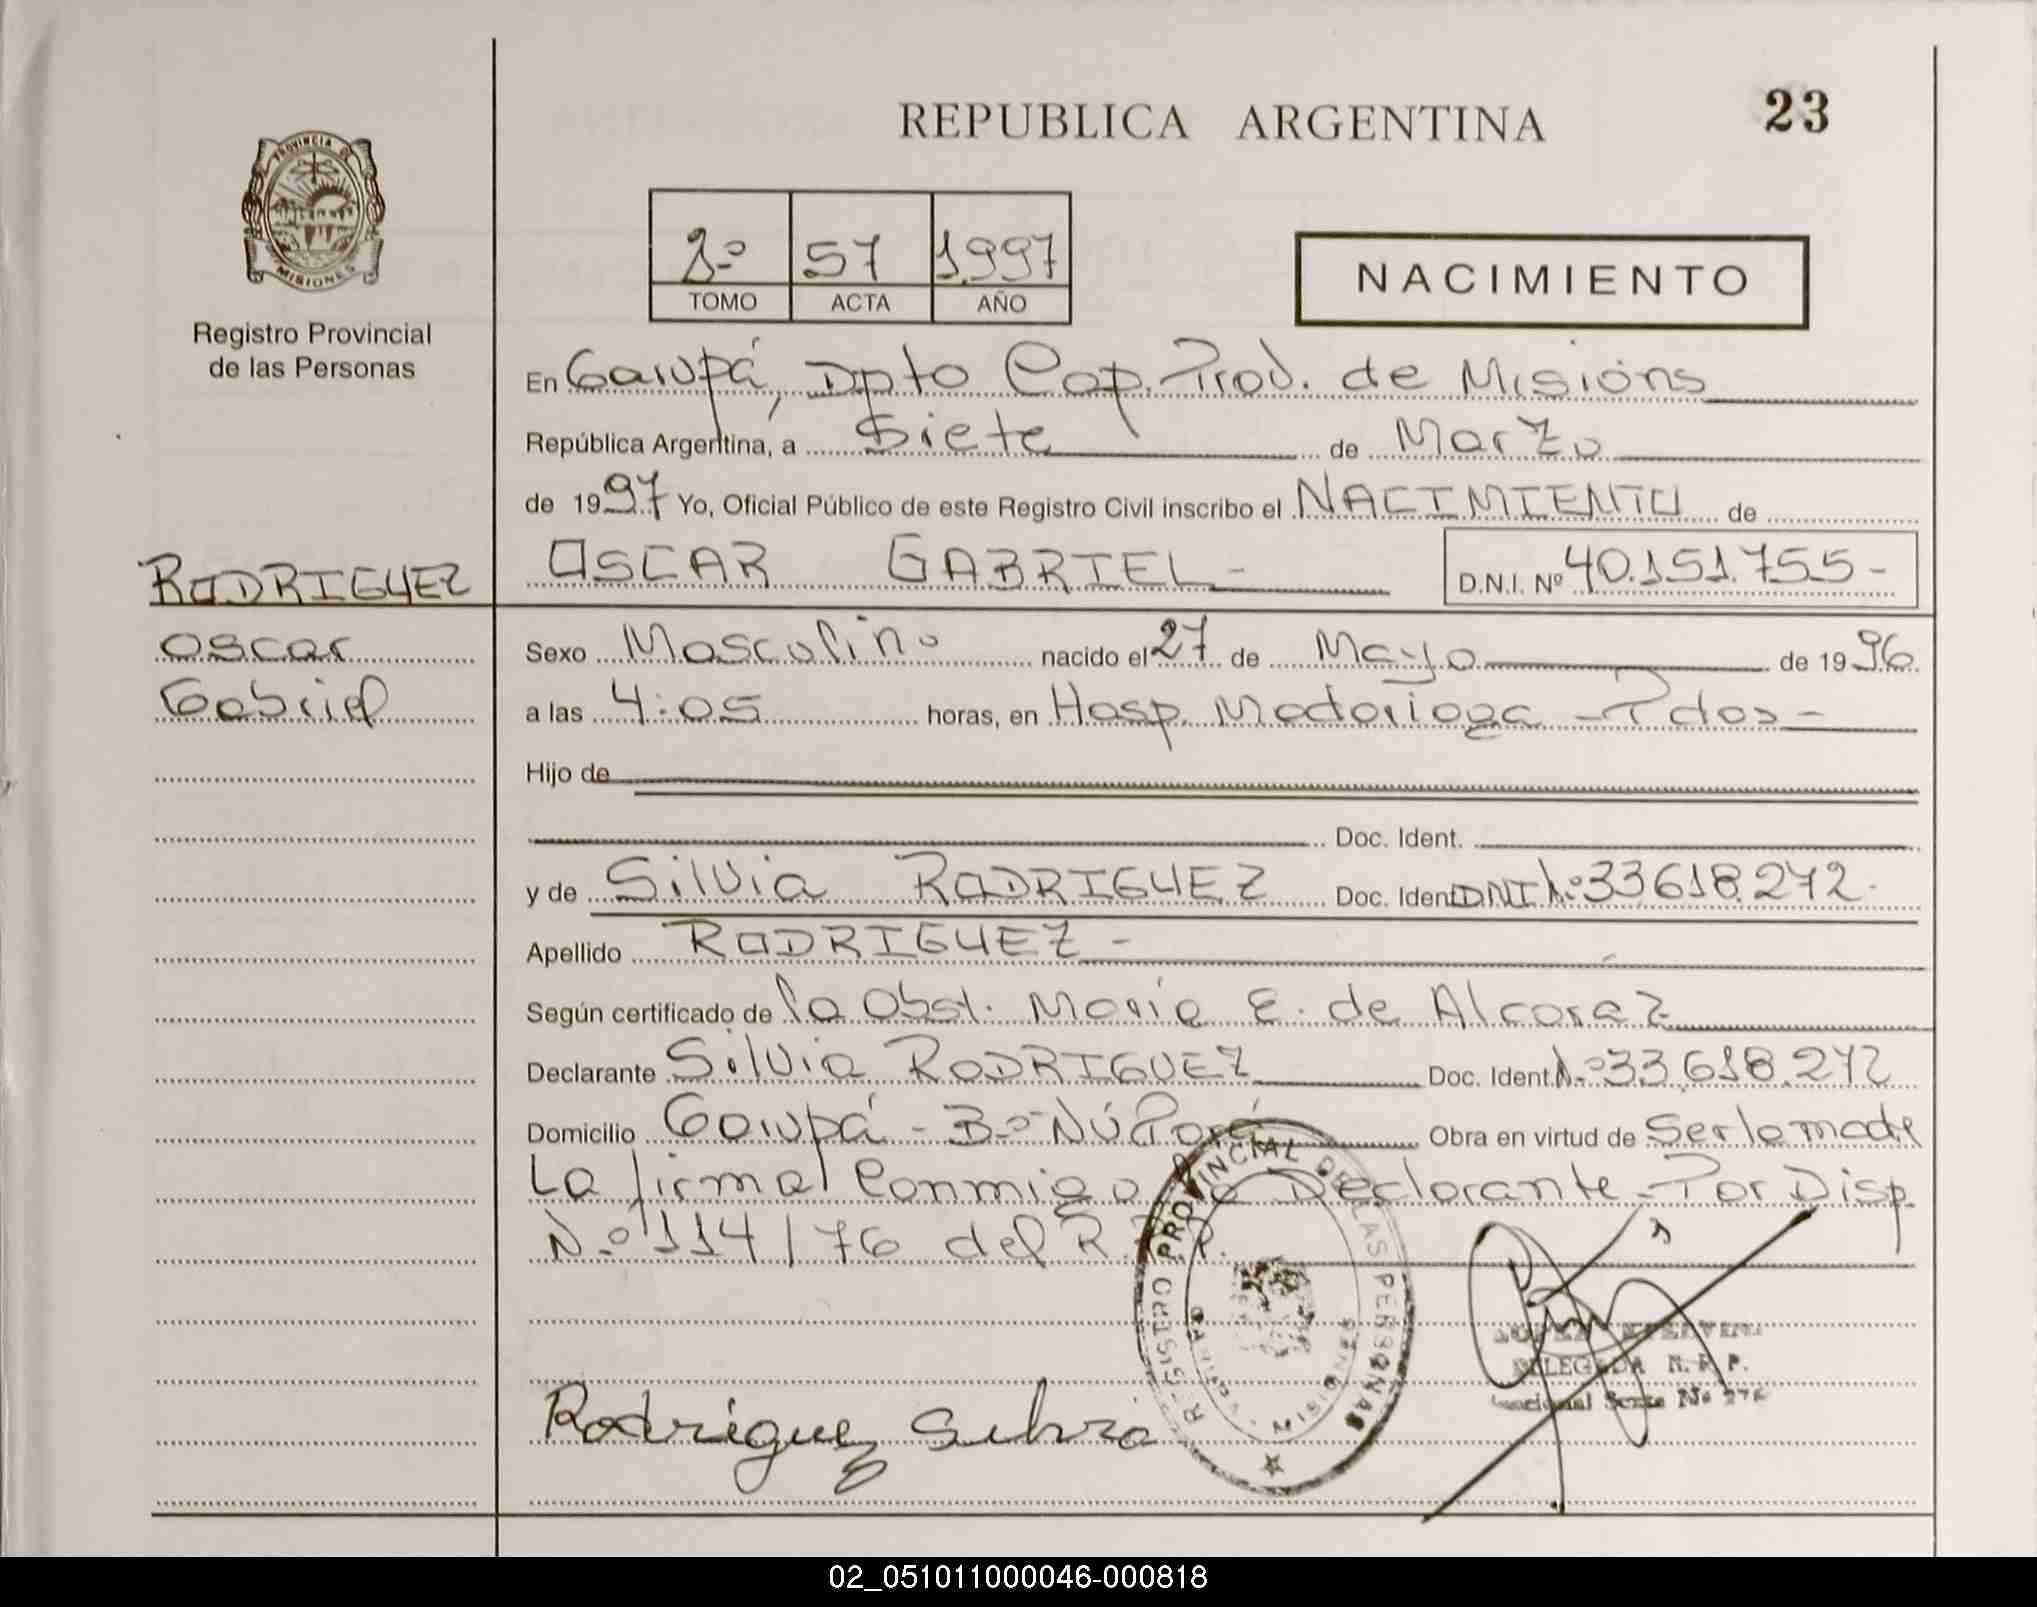 REPUBLICA ARGENTINA
23
PROVINCIA DE
MISIONES
Registro Provincial
de las Personas
2º 57 1.997
TOMO ACTA AÑO
NACIMIENTO
En Garupá, Dpto Cap. Prov. de Misions
República Argentina, a Siete de Marzo
de 1997 Yo, Oficial Público de este Registro Civil inscribo el NACIMIENTO de
RODRIGUEZ OSCAR GABRIEL - D.N.I. Nº 40.151.755-
Oscar Sexo Masculino nacido el 27 de Mayo de 1996
Gabriel a las 4:05 horas, en Hosp. Madariaga - Pdas -
Hijo de
Doc. Ident.
y de Silvia RODRIGUEZ Doc. Ident DNI Nº 33618.272-
Apellido RODRIGUEZ -
Según certificado de la Obst. Maria E. de Alcaraz
Declarante Silvia RODRIGUEZ Doc. Ident. Nº 33.618.272
Domicilio Garupá - Bº Ñú Porá Obra en virtud de Ser la madre
La firma Conmigo la Declarante - Por Disp.
Nº 114/76 del R.P.P.
REGISTRO PROVINCIAL DE LAS PERSONAS
DELEGADA R.P.P.
Rodriguez Silvia
02_051011000046-000818